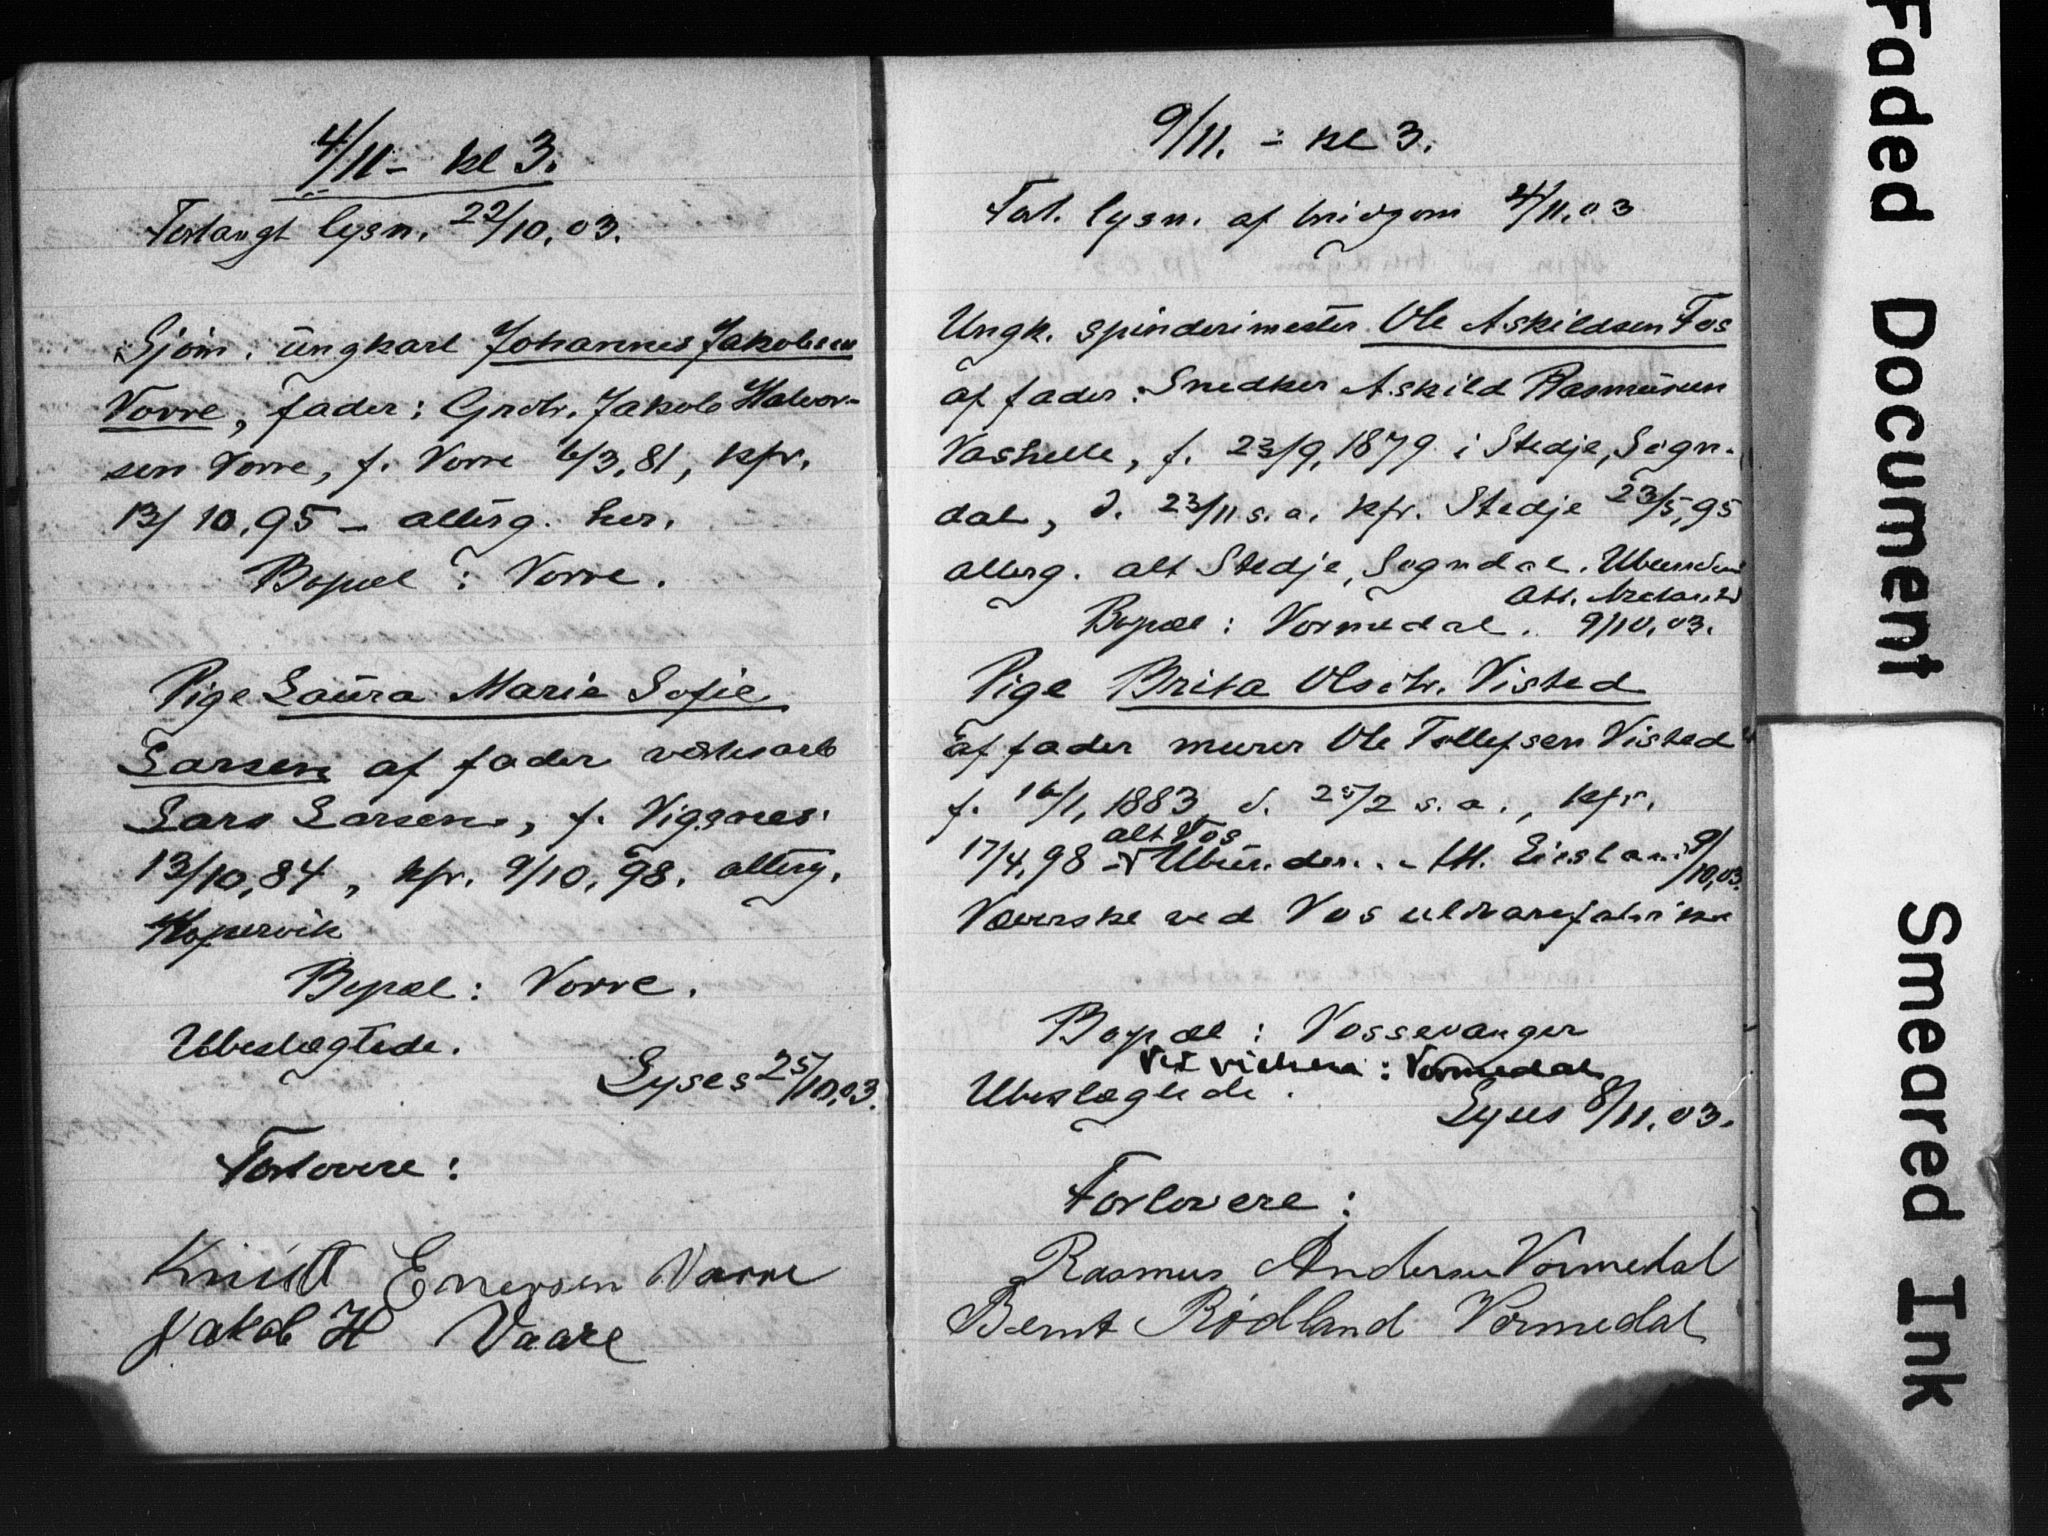 4/11 - kl 3.
Forlangt lysn. 22/10.03.
Sjøm. ungkarl Johannes Jakobsen
Vorre, fader: Grdbr. Jakob Halvor-
sen Vorre, f. Vorre 6/3,81, kfr.
13/10,95 - alterg. her.
Bopæl: Vorre.
Pige Laura Marie Sofie
Larsen af fader verksarb
Lars Larsen, f. Vigsnes
13/10,84, kfr. 9/10,98. alterg.
Kopervik
Bopæl: Vorre.
Ubeslægtede.
Lyses 25/10.03.
Forlovere:
Knut Enersen Vorre
Jakob H Vaare
9/11. - kl 3.
Forl. lysn. af brudgom 4/11.03
Ungk. spinderimester Ole Askildsen Fos
af fader: Snedker Askild Rasmussen
f. 23/9, 1879 i Stedje, Sogn-
dal, d. 23/11 s.a. kfr. Stedje 23/5,95
alterg. alt Stedje, Sogndal. Ubunden
Att.
Bopæl: Vormedal. 9/10.03.
Pige Brita Olsdtr. Visted
af fader murer Ole Tollefsen Visted
f. 16/1, 1883 d. 25/2 s.a., kfr.
alt Vos
17/4,98 - Ubunden. - 9/10.03.
Væverske ved Vos uldvarefabrikk
Bopæl: Vossevangen
ved vielsen: Vormedal
Ubeslægtede.
Lyses 8/11.03.
Forlovere:
Rasmus Andersen Vormedal
Bernt Rødland Vormedal
Faded Document
Smeared Ink